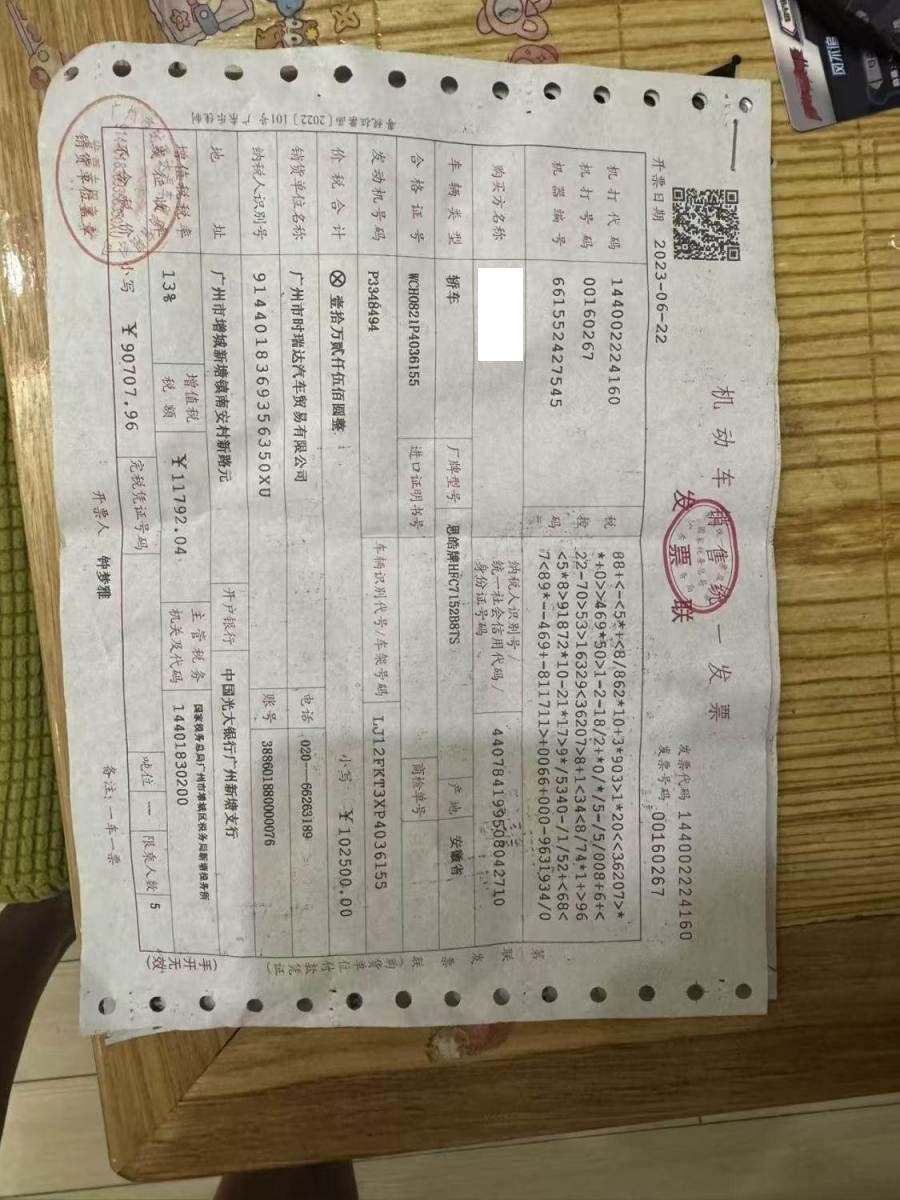 机动车销售统一发票
发票联
发票代码 144002224160
发票号码 00160267
开票日期 2023-06-22
机打代码 144002224160
机打号码 00160267
机器编号 661552427545
税控码
88+<-<5*+<8/862*10+3*903>1*20<<36207>*
*+0>>469*50>1-2-18/2+*0/*/5-/5/008+6+<
22-70>53>16329<36207>8+1<34<8/74*1+>96
<5*8>91872*10-21*17>9*/5340-/1/52+<68<
7<89*--469+-811711>+0066+000-9631934/0
购买方名称
纳税人识别号/统一社会信用代码/身份证号码 440784199508042710
车辆类型 轿车 厂牌型号 思皓牌HFC7152B8TS 产地 安徽省
合格证号 WCH0821P4036155 进口证明书号 商检单号
发动机号码 P3348494 车辆识别代号/车架号码 LJ12FKT3XP4036155
价税合计 ⊗壹拾万贰仟伍佰圆整 小写 ￥102500.00
销货单位名称 广州市时瑞达汽车贸易有限公司 电话 020-—66263189
纳税人识别号 91440183693563​50XU 账号 38860188000076
地址 广州市增城新塘镇南安村新路元 开户银行 中国光大银行广州新塘支行
增值税税率或征收率 13% 增值税税额 ￥11792.04 主管税务机关及代码 国家税务总局广州市增城区税务局新塘税务所 14401830200
不含税价 小写 ￥90707.96 完税凭证号码 吨位 — 限乘人数 5
销货单位盖章 开票人 钟梦雅 备注：一车一票
第 联 发票联（购货单位付款凭证）
（手开无效）